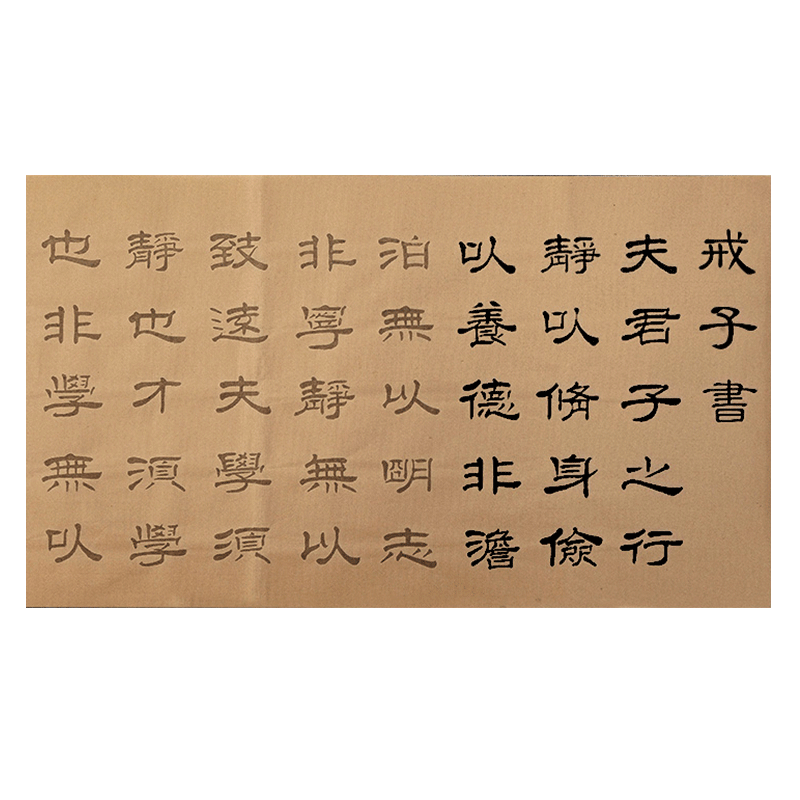 戒子書
夫君子之行
靜以脩身儉
以養德非澹
泊無以明志
非寧靜無以
致遠夫學須
靜也才須學
也非學無以